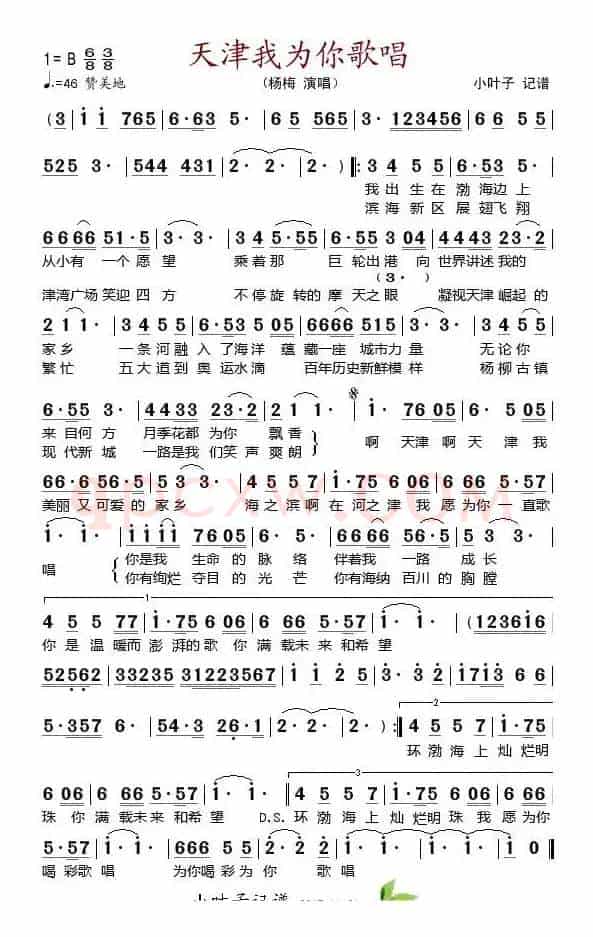 天津我为你歌唱
1= B 6/8 3/8
♩.=46 赞美地 (杨梅 演唱) 小叶子 记谱
(3 | i i 765 | 6·63 5· | 65 565 | 3· 3· | 123456 | 66 55 |
525 3· | 544 431 | 2· 2· | 2· 2· ) ‖: 3 4 5 5 | 6·53 5· |
我出生在渤海边上
滨海新区展翅飞翔
6666 51·5 | 3· 3· | 3445 | 6·55 3 04 | 4443 23·2 |
从小有 一个愿望 乘着那 巨轮出港 向世界讲述我的
(3·)
津湾广场笑迎四方 不停旋转的摩天之眼 凝视天津崛起的
2 1 1 | 3· 3 4 5 5 | 6·53 5 05 | 6666 515 | 3· 3 4 5 5 |
家乡 一条河融入了海洋 蕴藏一座城市力量 无论你
繁忙 五大道到奥运水滴 百年历史新鲜模样 杨柳古镇
6·55 3· | 4433 23·2 | 2 1 1 | i· 76 05 | i· 76 05 |
来自何方 月季花都为你飘香 啊 天津啊天津我
现代新城 一路是我们笑声爽朗
66·6 656·5 | 5 3 3· | i·75 6 06 | i·75 6 06 | 6 5 5·57 |
美丽又可爱的家乡 海之滨啊在河之津我愿为你一直歌
i· i· | i i i | 7605 | i i i 7605 | 6666 56·5 | 5 3 3· |
唱 你是我 生命的脉络 伴着我 一路成长
你有绚烂夺目的光芒 你有海纳百川的胸膛
1
4 5 5 77 | i·75 6 06 | 6 6 5·57 | i· i· | i· i· | (i 1236i6 |
你是温暖而澎湃的歌你满载未来和希望
52562 | 33235 31223567 | i i i· | i i i· | i7i3 6 6 |
5·357 6· | 54·3 26·1 | 2· 2· | 2· 2· ) :‖ 4 5 5 7 | i·75 |
2
环渤海上灿烂明
6 06 6 6 5·57 | i· i· | i· i· ‖ 4 5 5 7 | i·75 6 06 | 6 6 |
3
珠你满载未来和希望 D.S.环渤海上灿烂明珠我愿为你
5·57 | i· i· | i· i· | 666 5·57 | i· i· | i· i· | i· i 0 ‖
喝彩歌唱 为你喝彩为你歌唱
小叶子记谱